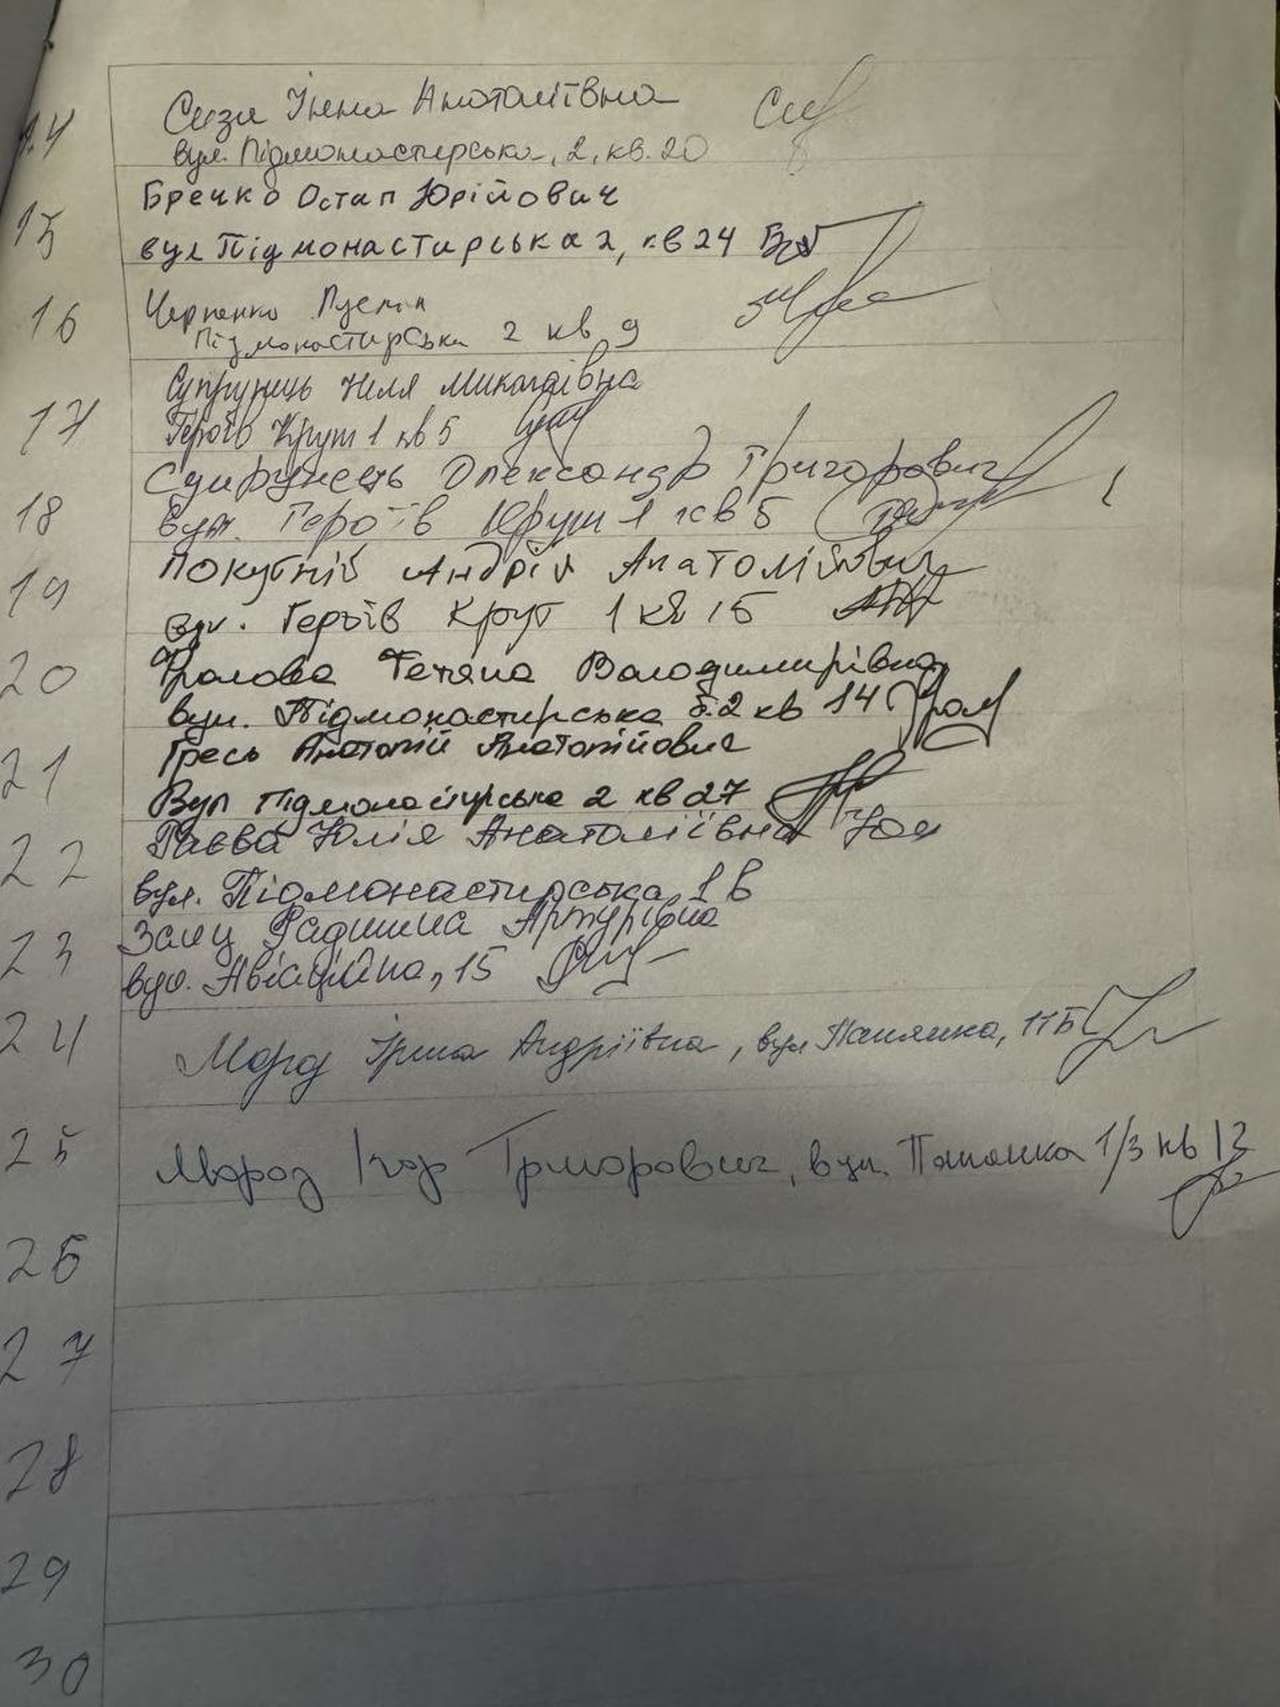 14 Інна Анатоліївна
вул. Підмонастирська, 2, кв. 20
15 Бречко Остап Юрійович
вул Підмонастирська 2, кв 24
16
Підмонастирська 2 кв 9
17 Супрунець Неля Миколаївна
Героїв Крут 1 кв 5
18 Супрунець Олександр Григорович
вул. Героїв Крут 1 кв 5
19 Покутній Андрій Анатолійович
вул. Героїв Крут 1 кв 15
20 Фролова Тетяна Володимирівна
вул. Підмонастирська б. 2 кв 14
21 Гресь Анатолій Анатолійович
Вул Підмонастирська 2 кв 27
22 Юлія Анатоліївна
вул. Підмонастирська, 1 в
23 Заяц Артурівна
вул. Авіаційна, 15
24 Ірина Андріївна, вул 11Б
25 Мороз Ігор Григорович, вул. 1/3 кв 13
26
27
28
29
30